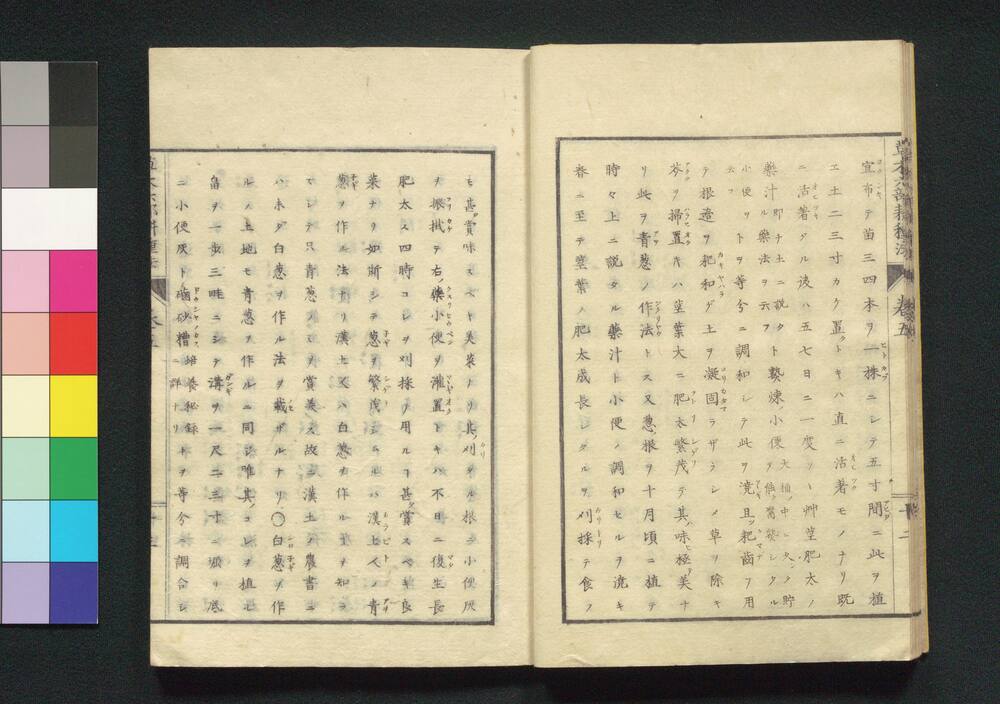 宜布テ苗三四本ヲ一株ニシテ五寸間ニ此ヲ植
ヱ土二三寸カク置クトキハ直ニ活著モノナリ既
ニ活著タル後ハ五七日ニ一度ツヽ艸莖肥太ノ
藥汁
小便ヲ等分ニ調和シテ此ヲ澆且ツ耙齒ヲ用
テ根邊ヲ耙和ゲ土ヲ凝固ラザラシメ草ヲ除キ
芥ヲ掃置キハ莖葉大ニ肥太繁茂テ其ノ味ヒ極テ美ナ
リ此ヲ青葱ノ作法トス又葱ノ根ヲ十月頃ニ植テ
時々上ニ説タル藥汁ト小便ノ調和セルヲ澆キ
春ニ至テ莖葉ノ肥太成長シタルヲ刈採テ食フ
モ甚ダ賞味スベキ美菜ナリ其ノ刈タル根ニ小便灰
ヲ振掛テ右ノ藥小便ヲ灌置トキハ不日ニ復生長
肥太ス四時コレヲ刈採テ用ルコ甚ダ賞スベキ良
菜ナリ如斯シテ葱ヲ繁茂シムルハ漢土人ノ青
葱ヲ作ル法ナリ漢土人ハ白葱ヲ作ル事ヲ知ラ
ズシテ只青葱ノミヲ賞美ス故ニ漢土ノ農書ニ
ハ未ダ白葱ヲ作ル法ヲ載ザルナリ〇白葱ヲ作
ルノ土地モ青葱ヲ作ルニ同シ唯其ノコレヲ植ル
畠ヲ一歩三畦ニシテ溝ヲ一尺二三寸ニ堀リ底
ニ小便灰ト硇砂糟培養秘録ニ詳ナリトヲ等分ニ調合シ